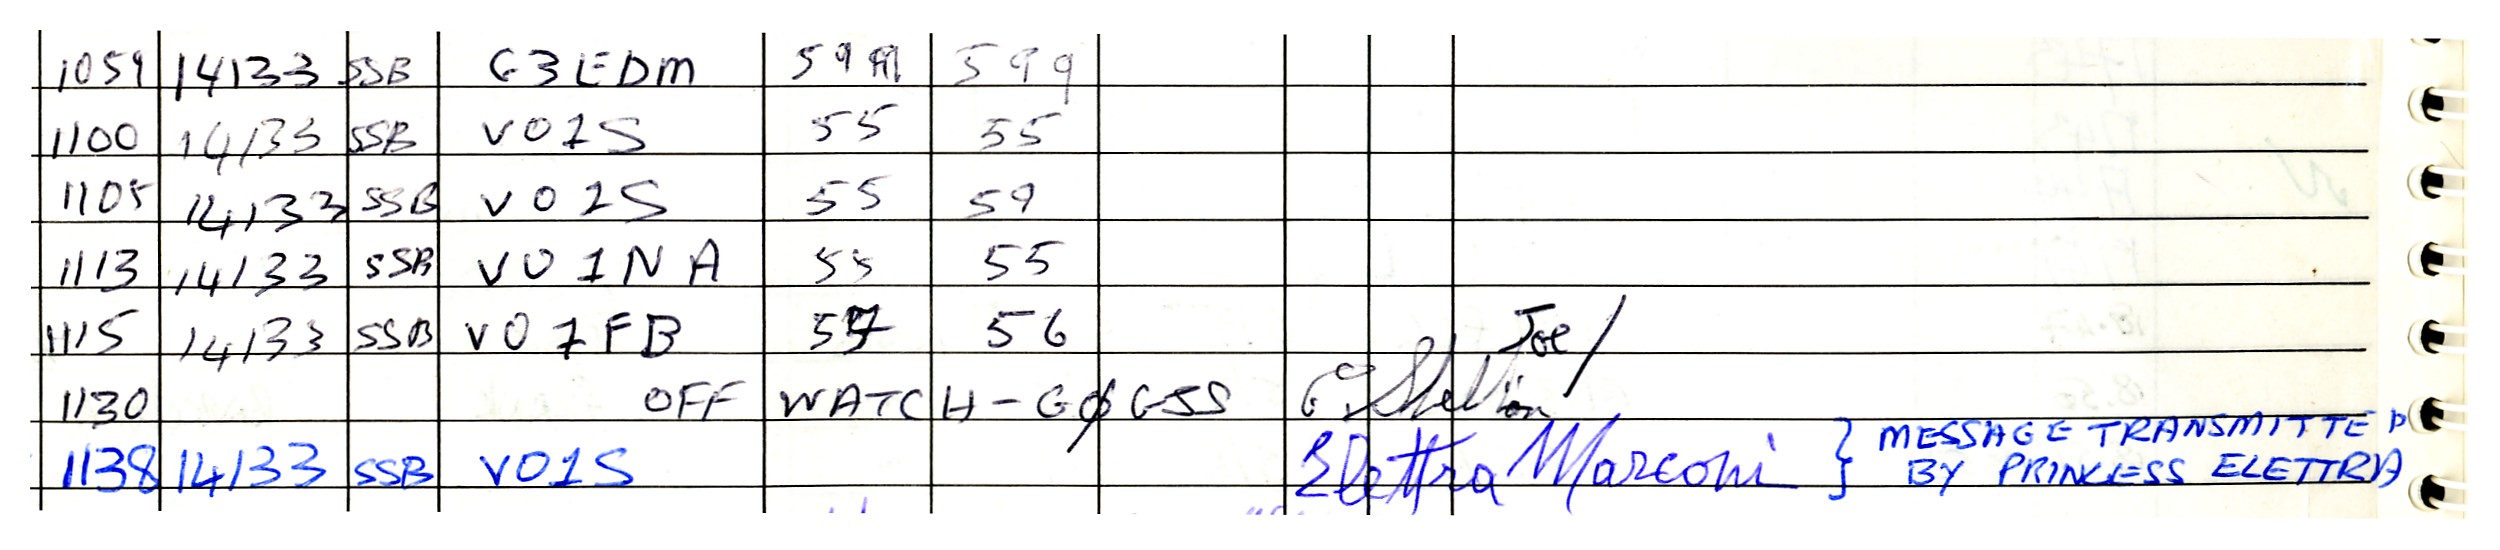 1059 14133 SSB G3LEDM 599 599
1100 14133 SSB VO1S 55 55
1105 14133 SSB VO1S 55 59
1113 14133 SSB VO1NA 55 55
1115 14133 SSB VO1FB 57 56
Joe/
1130 OFF WATCH - GØGSS
1138 14133 SSB VO1S Elettra Marconi } MESSAGE TRANSMITTED
BY PRINCESS ELETTRA